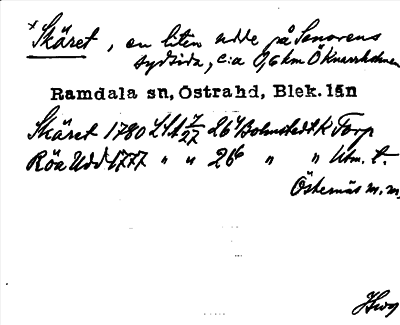 *Skäret, en liten udde på Senorens
sydsida, c:a 0,6 km Ö Knarrholmen
Ramdala sn, Östrahd, Blek. län
Skäret 1780 LSA 7/27 26⁴ Bohmstedt k Torp
Röa Udd 1777 " " 26⁶ " " Utm. t.
Östernäs m.m.